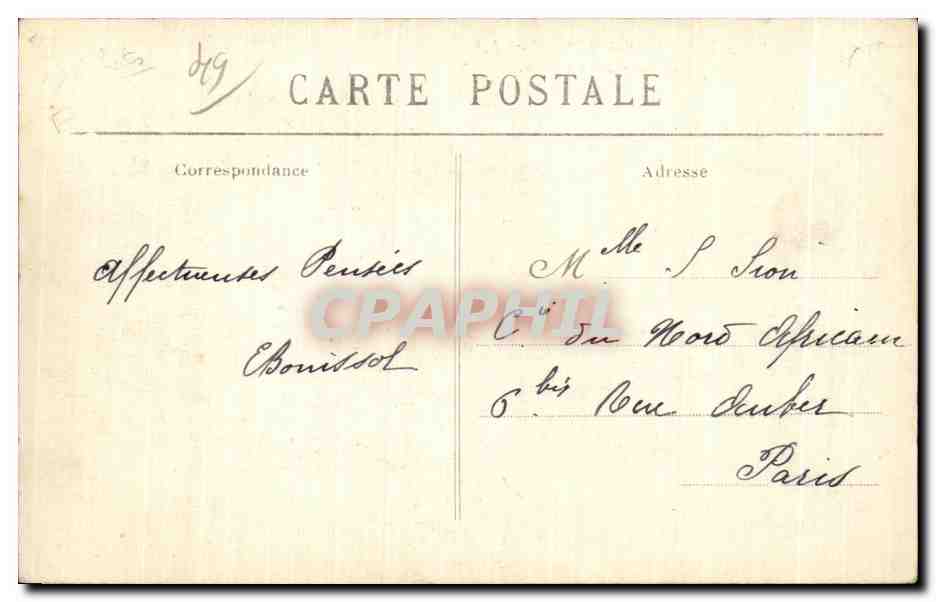 49
CARTE POSTALE
Correspondance
Adresse
Affectueuses Pensées
EBouissol
Mlle S Sion
Cie du Nord Africain
6 bis Rue Auber
Paris
CPAPHIL